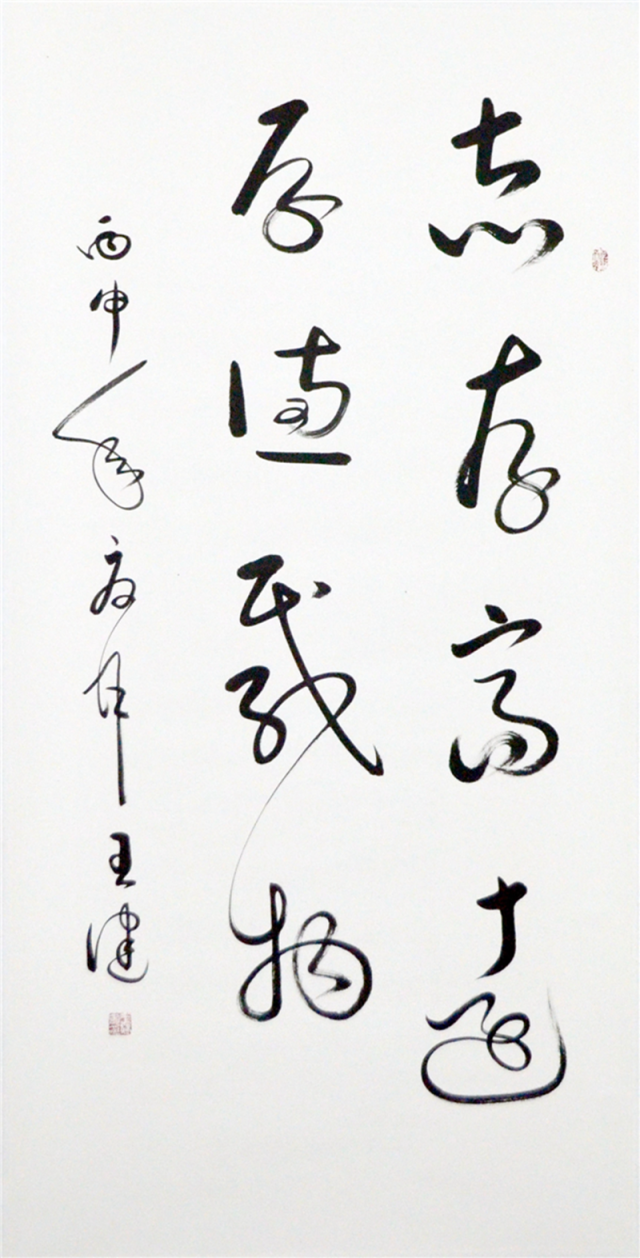 志存高远
厚德载物
丙申年夏月王健